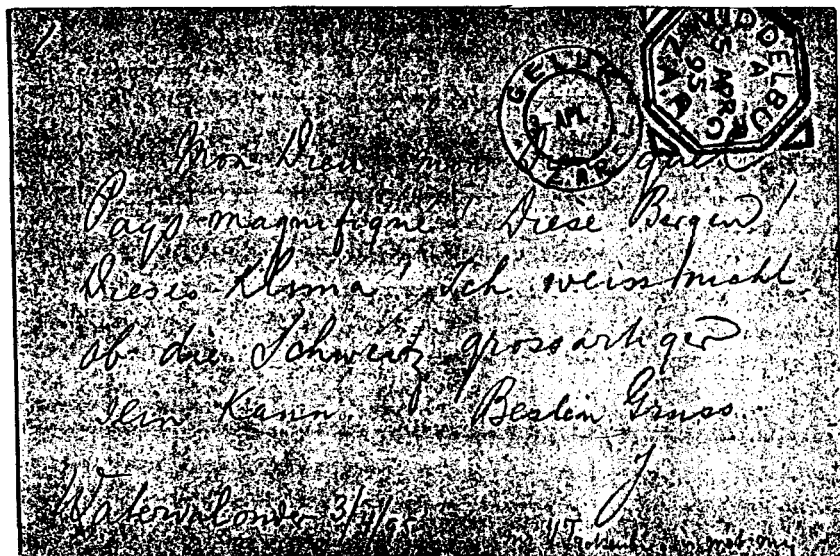 MIDDELBURG
A
5 APR
95
Z.A.R.
GELUK
APL
Z.A.R.
Mon Dieu mon Dieu quel
Pays magnifique! Diese Bergen!
Dieses Klima! Ich weiss nicht
ob die Schweitz grossartiger
sein kann. Besten Gruss
J
Watervalonder 3/4/95